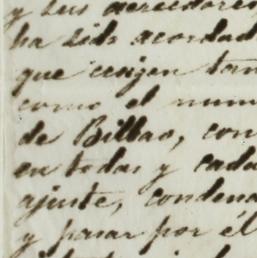 y sus acreedores
ha sido acordad
que exigen tan
como el num
de Bilbao, con
en todas y cada
ajuste, condena
y pasar por él